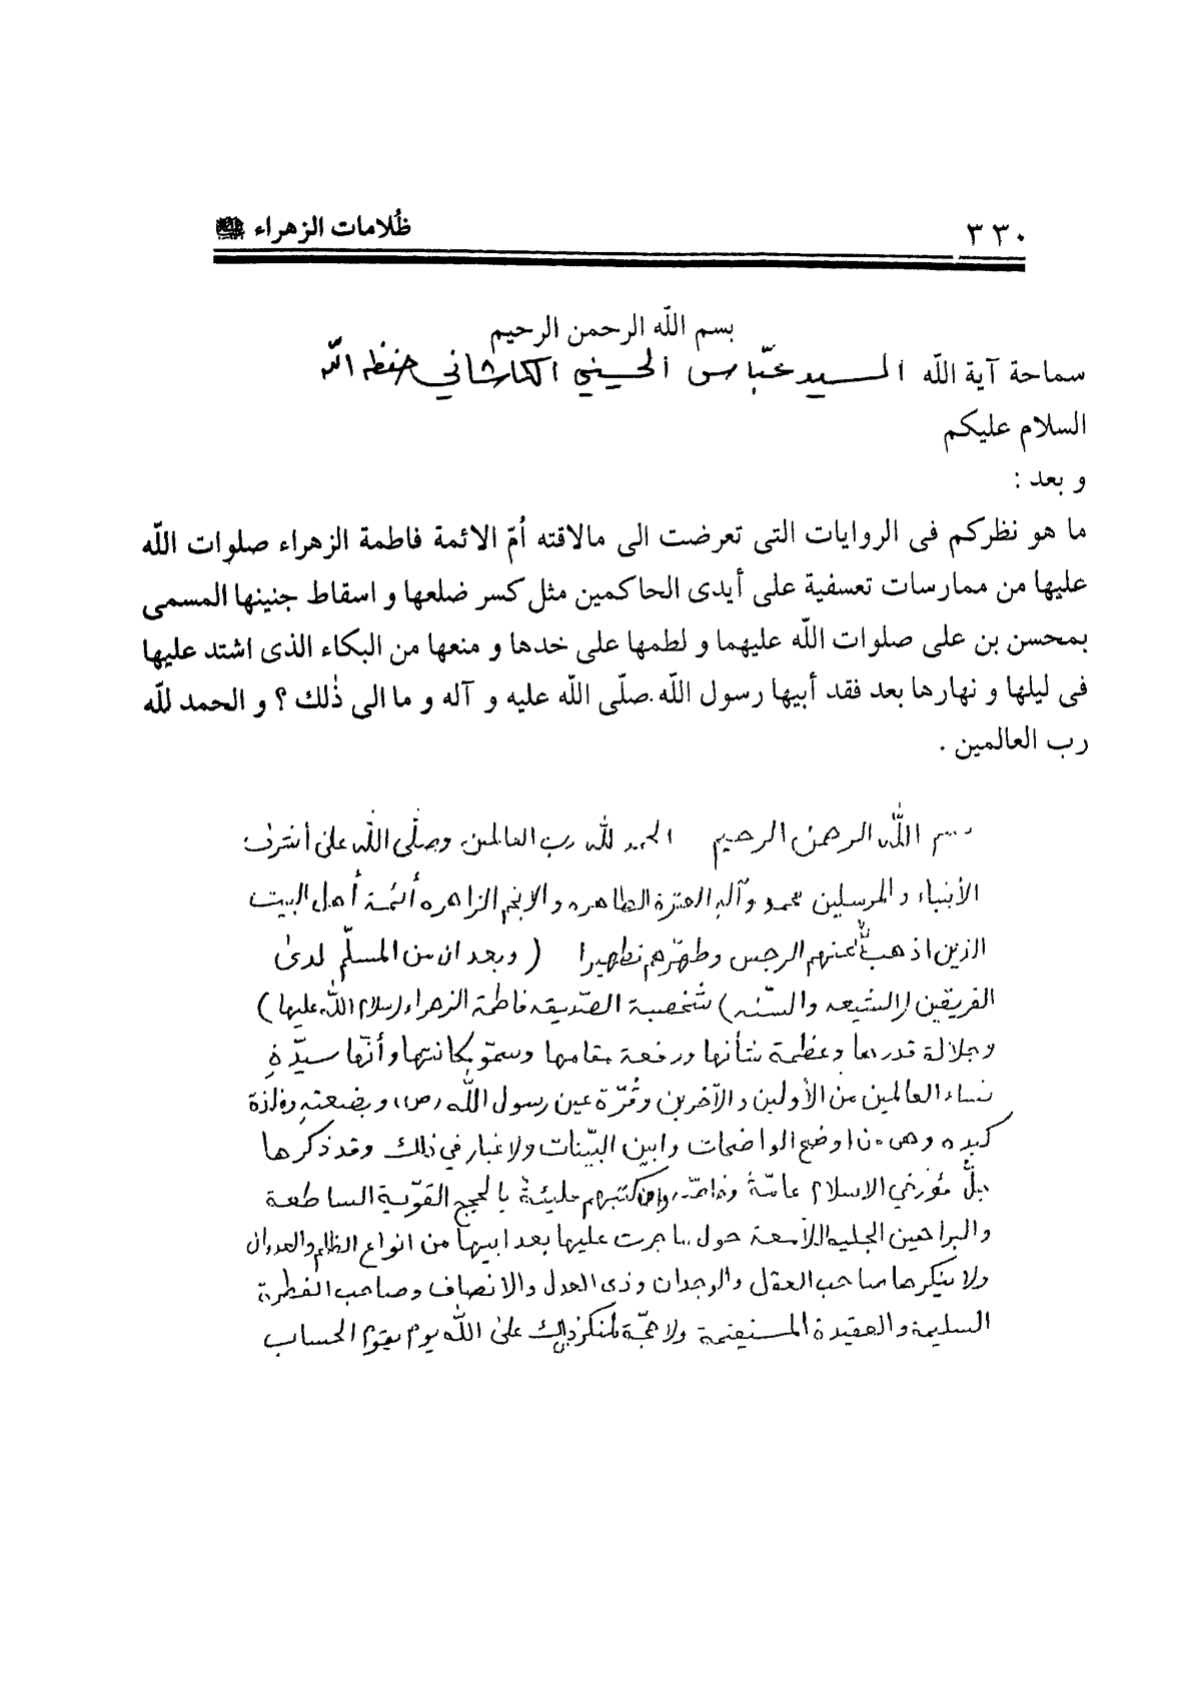 ٣٣٠
ظُلامات الزهراء
بسم اللّه الرحمن الرحيم
سماحة آية اللّه السيد عبّاس الحسيني الكاشاني حفظه اللّه
السلام عليكم
و بعد :
ما هو نظركم فى الروايات التى تعرضت الى مالاقته أمّ الائمة فاطمة الزهراء صلوات اللّه
عليها من ممارسات تعسفية على أيدى الحاكمين مثل كسر ضلعها و اسقاط جنينها المسمى
بمحسن بن على صلوات اللّه عليهما و لطمها على خدها و منعها من البكاء الذى اشتد عليها
فى ليلها و نهارها بعد فقد أبيها رسول اللّه صلّى اللّه عليه و آله و ما الى ذٰلك ؟ و الحمد للّه
رب العالمين .
بسم اللّه الرحمن الرحيم الحمد للّه رب العالمين وصلّى اللّه على أشرف
الأنبياء والمرسلين محمد وآله العترة الطاهره والانجم الزاهره أئمة أهل البيت
الذين اذهب اللّه عنهم الرجس وطهّرهم تطهيرا ( وبعد ان من المسلّم لدى
الفريقين (الشيعه والسّنه) شخصية الصّديقه فاطمة الزهراء (سلام اللّه عليها)
وجلالة قدرها وعظمة شأنها ورفعة مقامها وسموّ مكانتها وأنّها سيّدة
نساء العالمين من الأولين والآخرين وقُرّة عين رسول اللّه (ص) وبضعته وفلذة
كبده وهى من اوضح الواضحات وابين البيّنات ولا غبار في ذلك وقد ذكرها
جلّ مؤرخي الاسلام عامّة وخاصّة كتبهم مليئة بالحجج القوّية الساطعة
والبراهين الجليه اللامعة حول ما جرت عليها بعد ابيها من انواع الظلم والعدوان
ولا ينكرها صاحب العقل والوجدان وذى العدل والانصاف وصاحب الفطرة
السليمة والعقيدة المستقيمة ولا حجّة لمنكر ذلك على اللّه يوم يقوم الحساب